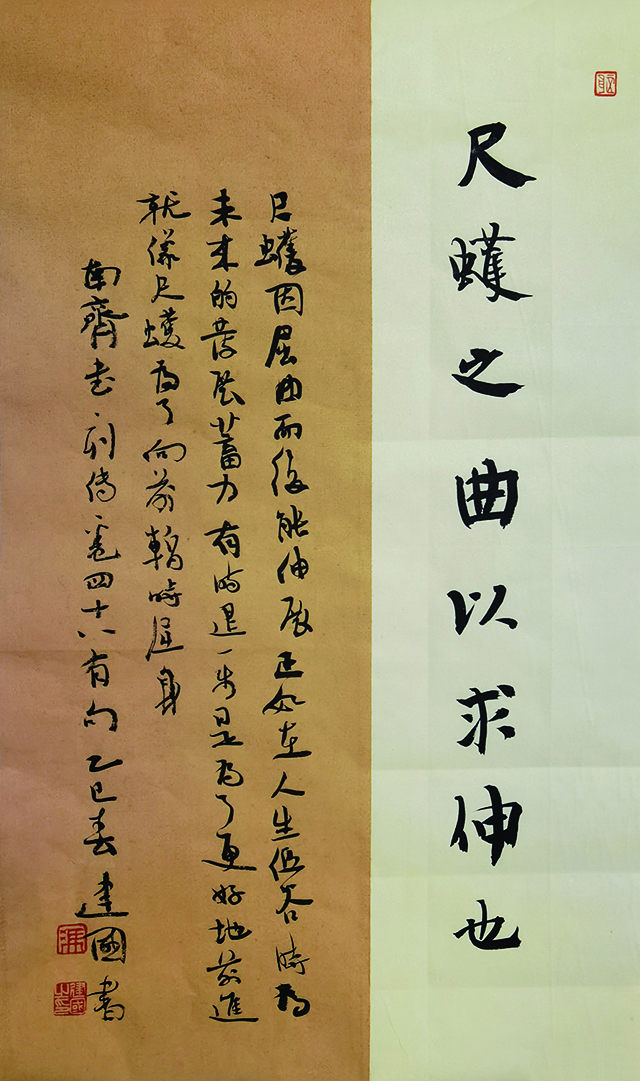 尺蠖之曲以求伸也
尺蠖因屈曲而後能伸展正如在人生低谷時為
未來的發展蓄力有時退一步是為了更好地前進
就像尺蠖為了向前暫時屈身
南齊書列傳卷四十八有句乙巳春建國書